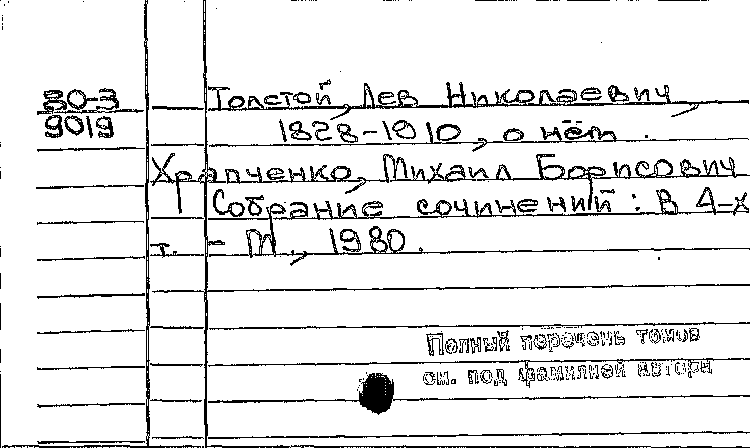 80-3
9019
Толстой, Лев Николаевич,
1828-1910, о нём.
Храпченко, Михаил Борисович
Собрание сочинений: В 4-х
т. - М., 1980.
Полный перечень томов
см. под фамилией автора